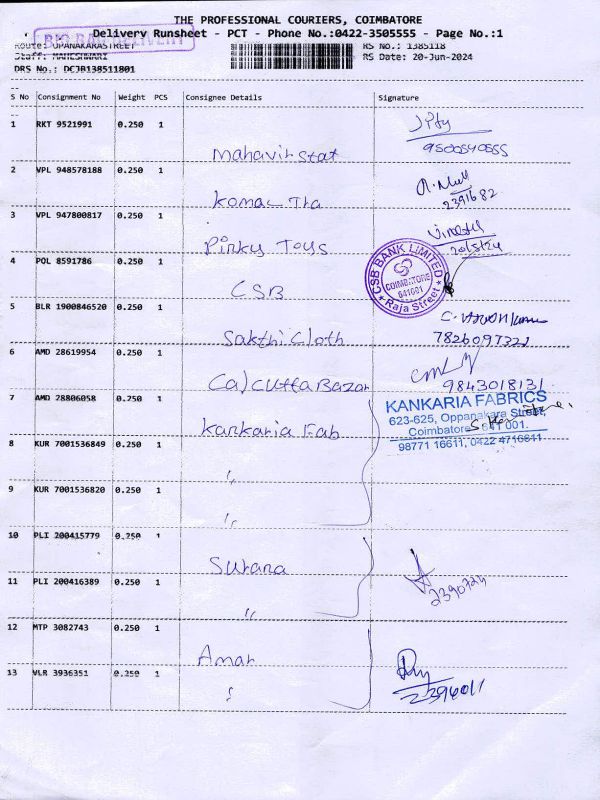 THE PROFESSIONAL COURIERS, COIMBATORE
Delivery Runsheet - PCT - Phone No.:0422-3505555 - Page No.:1
Route: OPANAKARASTREET
RS No.: 1385118
Staff: MAHESHWARI
RS Date: 20-Jun-2024
DRS No.: DCJB138511801
S No Consignment No Weight PCS Consignee Details Signature
1 RKT 9521991 0.250 1
Mahavir Stat
2 VPL 948578188 0.250 1
2391682
3 VPL 947800817 0.250 1
Pinky Toys
4 POL 8591786 0.250 1
CSB
CSB BANK LIMITED
COIMBATORE
641001
Raja Street
5 BLR 1900846520 0.250 1
Sakthi Cloth
7826097321
6 AMD 28619954 0.250 1
Calcutta Bazar
9843018131
7 AMD 28806058 0.250 1
Kankaria Fab
KANKARIA FABRICS
623-625, Oppanakara Street
Coimbatore - 641 001.
98771 16611, 0422 4716611
8 KUR 7001536849 0.250 1
"
9 KUR 7001536820 0.250 1
"
10 PLI 200415779 0.250 1
Surana
11 PLI 200416389 0.250 1
"
12 MTP 3082743 0.250 1
Amar
13 VLR 3936351 0.250 1
"